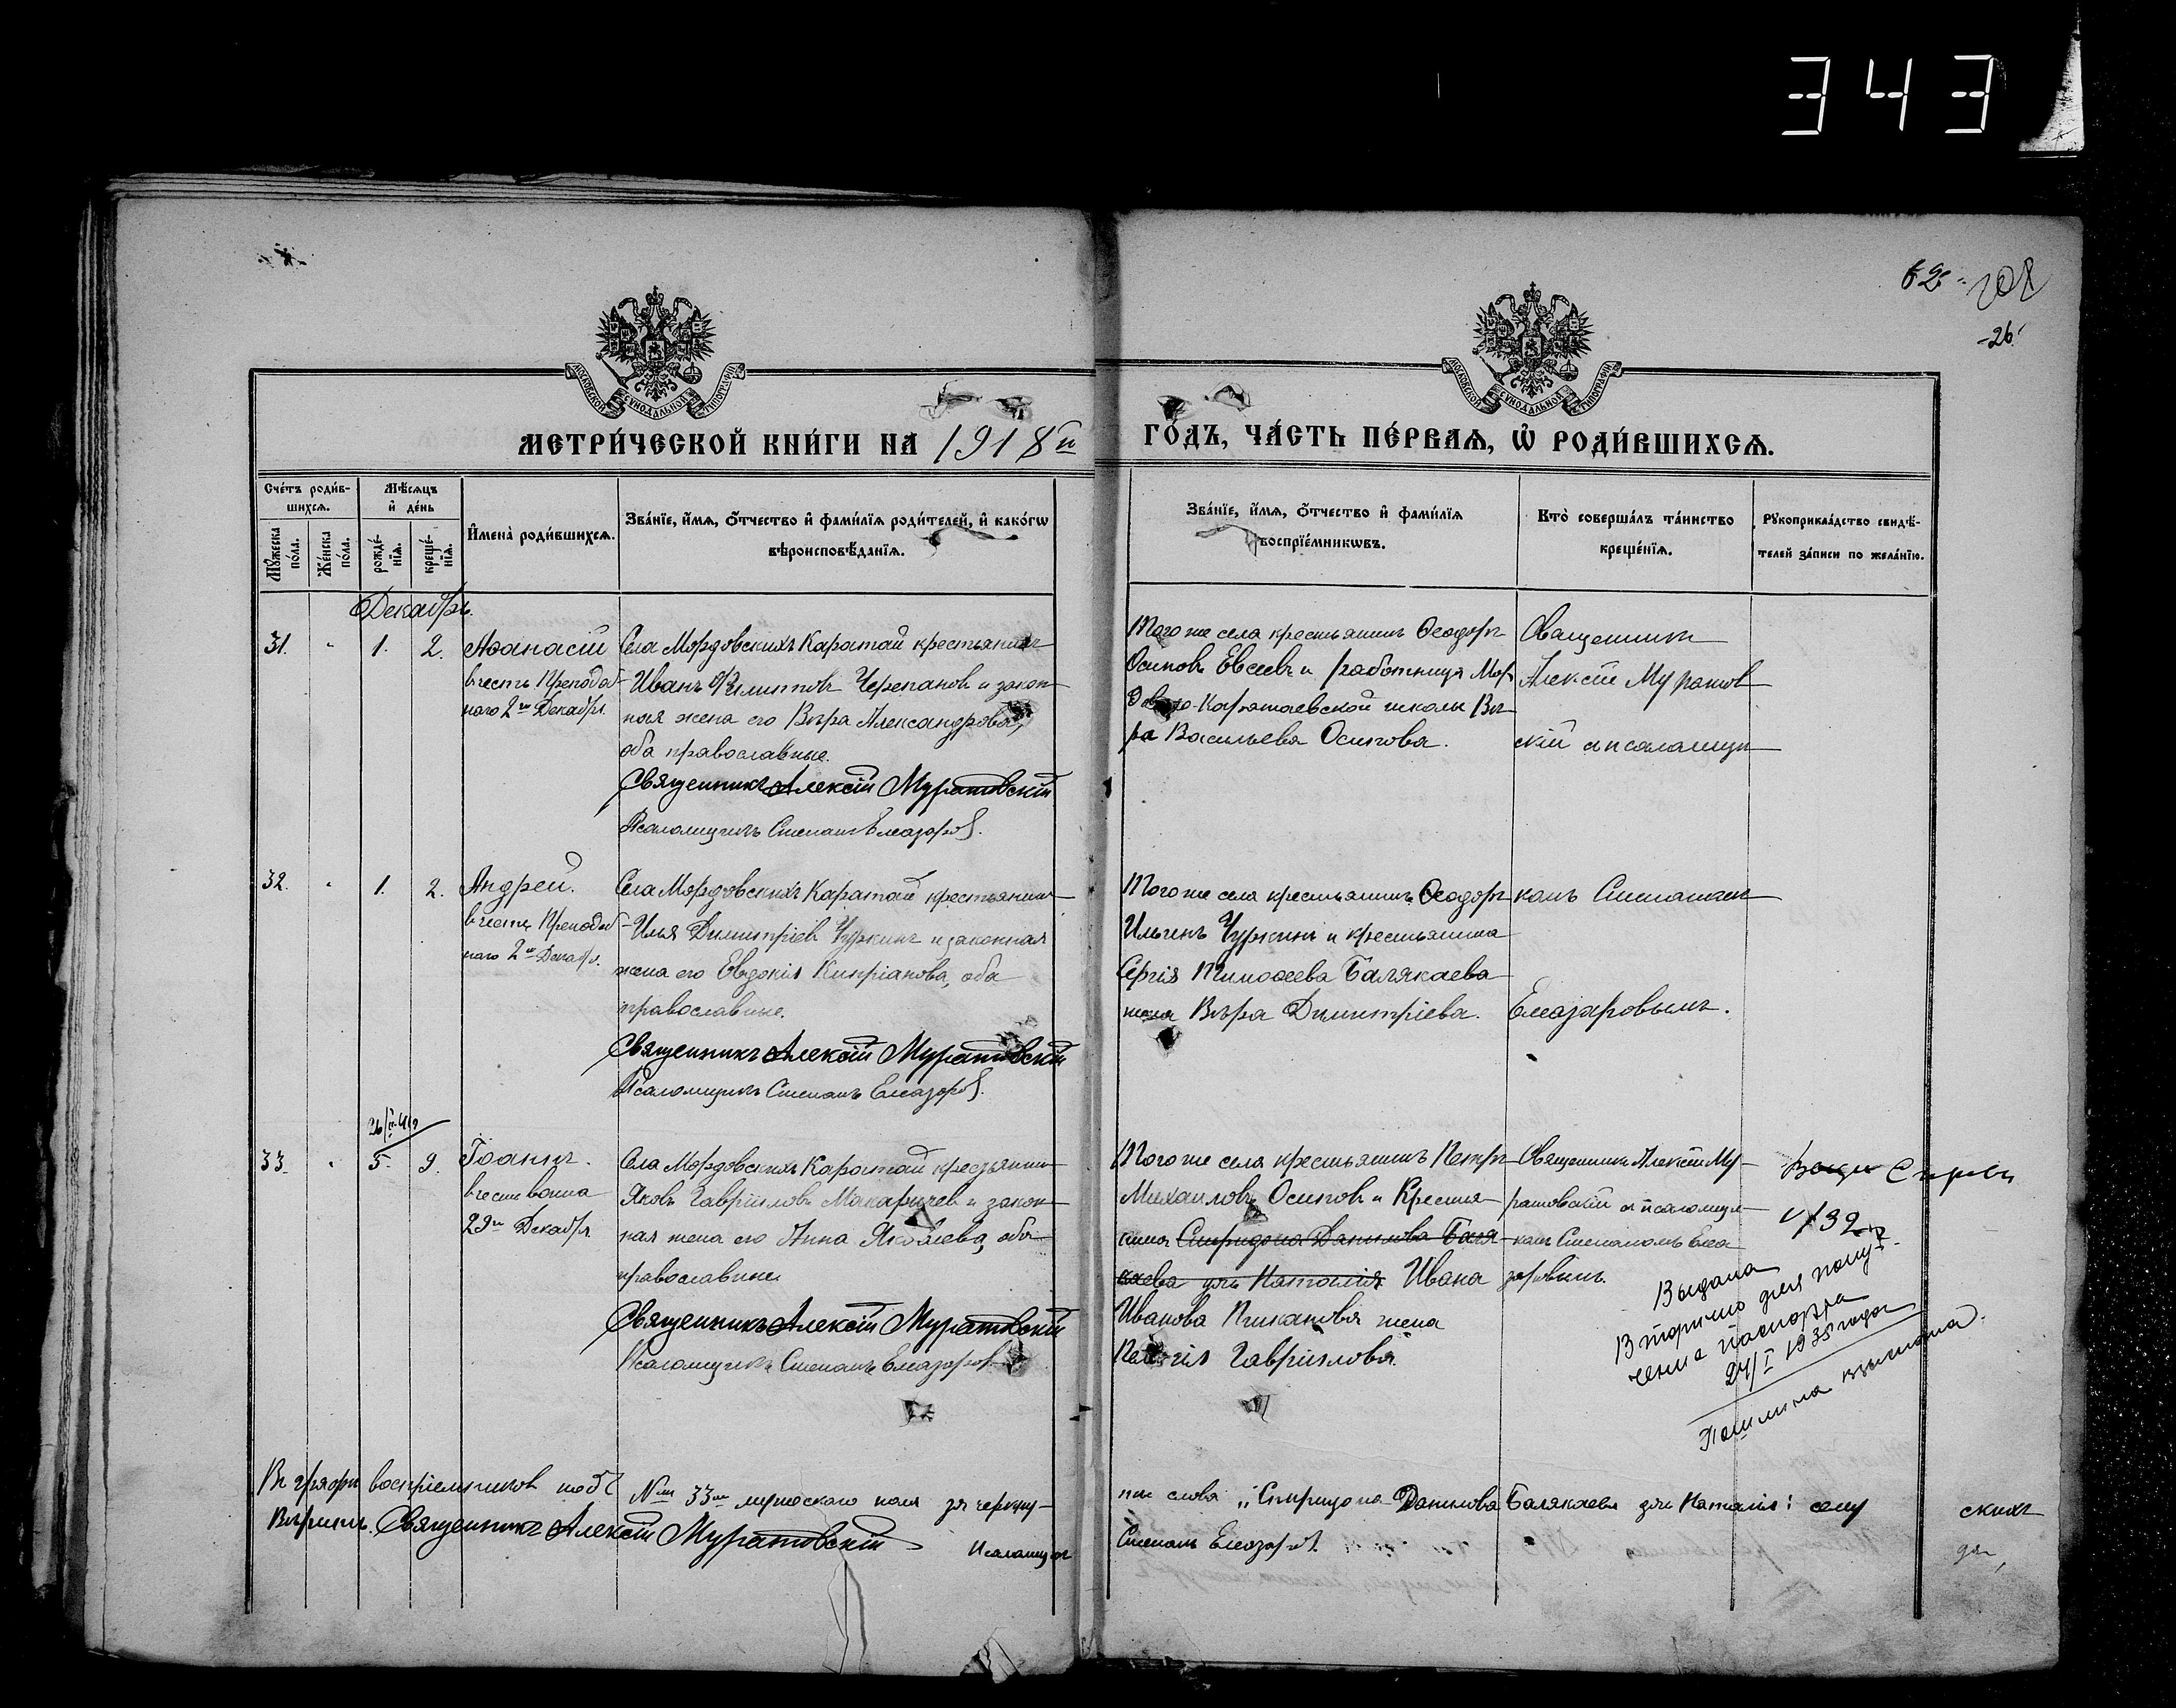 343
62
208
-26
МОСКОВСКОЙ СѴНОДАЛЬНОЙ ТИПОГРАФІИ
МОСКОВСКОЙ СѴНОДАЛЬНОЙ ТИПОГРАФІИ
МЕТРИ́ЧЕСКОЙ КНИ́ГИ НА 1918й ГО́ДЪ, ЧА́СТЬ ПЕ́РВАѦ, Ѡ҆ РОДИ́ВШИХСѦ.
Сче́тъ роди́в-
шихсѧ.
Мѣ́сѧцъ
и҆ де́нь
Мꙋ́жеска по́ла.
Же́нска по́ла.
рожде́-
нїѧ.
креще́-
нїѧ.
И҆мена̀ роди́вшихсѧ.
Зва́нїе, и҆́мѧ, ѻ҆́тчество и҆ фами́лїѧ роди́телей, и҆ како́гѡ
вѣроисповѣ́данїѧ.
Зва́нїе, и҆́мѧ, ѻ҆́тчество и҆ фами́лїѧ
воспрїе́мникѡвъ.
Кто̀ соверша́лъ та́инство
креще́нїѧ.
Рꙋкоприкла́дство свидѣ́-
телей за́писи по жела́нїю.
Декабрь.
31. " 1. 2. Аѳанасій
въ честь Преподоб-
наго 2го Декабря.
Села Мордовскихъ Каратай крестьянинъ
Иванъ Филипповъ Черепановъ и закон-
ная жена его Вѣра Александрова,
оба православные.
Священникъ Алексій Муратовскій
Псаломщикъ Степанъ Елеазаров.
Того же села крестьянинъ Ѳеодоръ
Осиповъ Евсеевъ и работница Мор-
дово-Каратаевской школы Вѣ-
ра Васильева Осипова.
Священникъ
Алексій Муратов
скій съ псаломщи
32. " 1. 2. Андрей.
въ честь Преподоб-
наго 2го Декабря.
Села Мордовскихъ Каратай крестьянинъ
Илья Димитріевъ Чуркинъ и законная
жена его Евдокія Кипріанова, оба
православные.
Священникъ Алексій Муратовскій
Псаломщикъ Степанъ Елеазаров.
Того же села крестьянинъ Ѳеодоръ
Ильинъ Чуркинъ и крестьянина
Сергія Тимоѳеева Балякаева
жена Вѣра Димитріева.
комъ Степаномъ
Елеазаровымъ.
33. " 5. 9. Іоаннъ.
въ честь воина
29го Декабря
Села Мордовскихъ Каратай крестьянинъ
Яковъ Гавриловъ Макарычев и закон-
ная жена его Анна Яковлева, оба
православные
Священникъ Алексій Муратовскій
Псаломщикъ Степанъ Елеазаров
Того же села крестьянинъ Петръ
Михаиловъ Осиповъ и крестья-
нина Спиридона Данилова Баля-
каева дочь Наталія Ивана
Иванова Пиканова жена
Пелагія Гаврилова.
Священникъ Алексій Му-
ратовскій съ псаломщи-
комъ Степаномъ Елеа
заровымъ.
Выдана
Вторично для полу-
чения паспорта
24/I 1935 года
Пошлина взыскана.
Въ графѣ воспріемниковъ подъ №мъ 33мъ мужскаго пола зачеркну-
тыя слова „Спиридона Данилова Балякаева дочь Наталія:
Вѣрить. Священникъ Алексій Муратовскій
Псаломщикъ
Степанъ Елеазаров.
скихъ